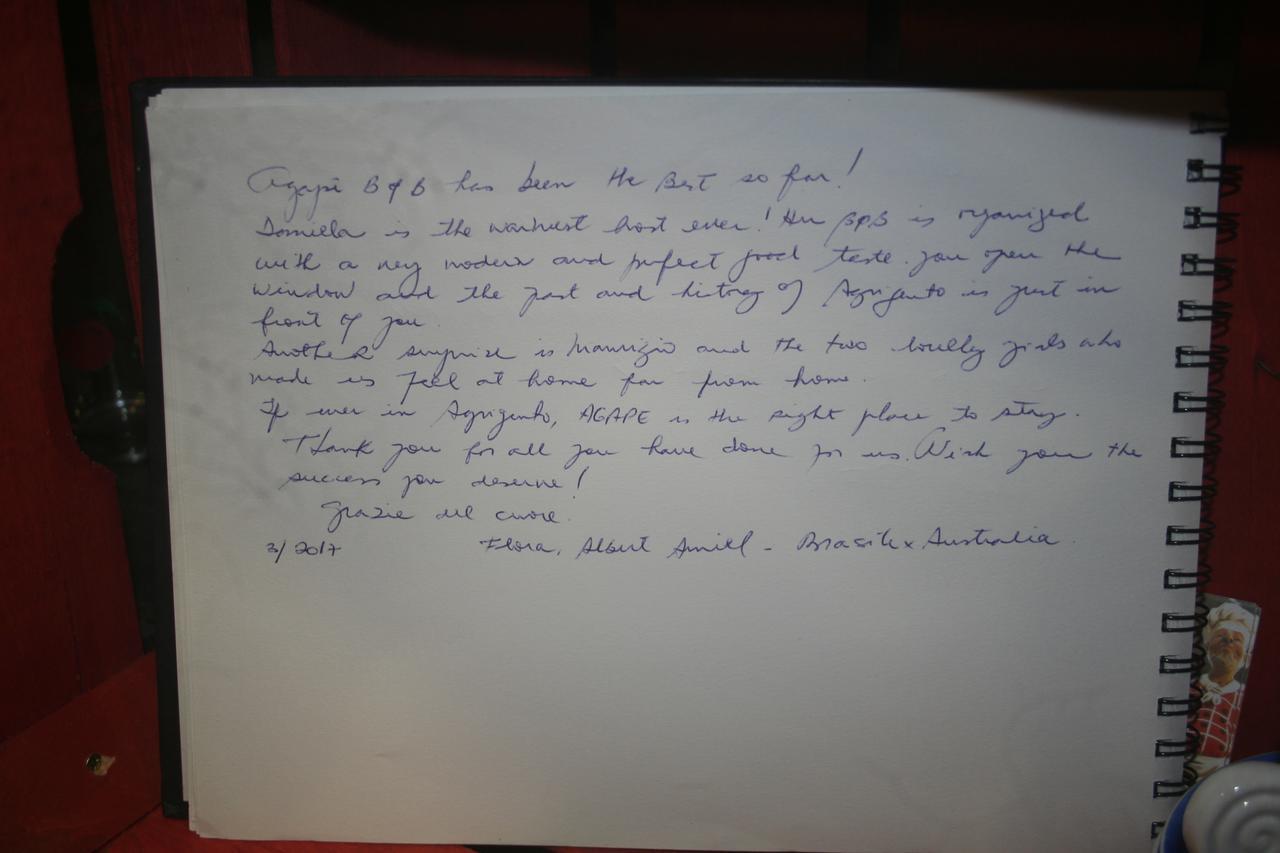 Agapè B&B has been the Best so far!
Daniella is the warmest host ever! Her B&B is organized
with a very modern and perfect good taste. you open the
window and the past and history of Agrigento is just in
front of you.
Another surprise is Maurizio and the two lovely girls who
made us feel at home far from home.
If ever in Agrigento, AGAPE is the right place to stay.
Thank you for all you have done for us. Wish you the
success you deserve!
Grazie del cuore.
3/2017 Flora, Albert - Brasil x Australia.